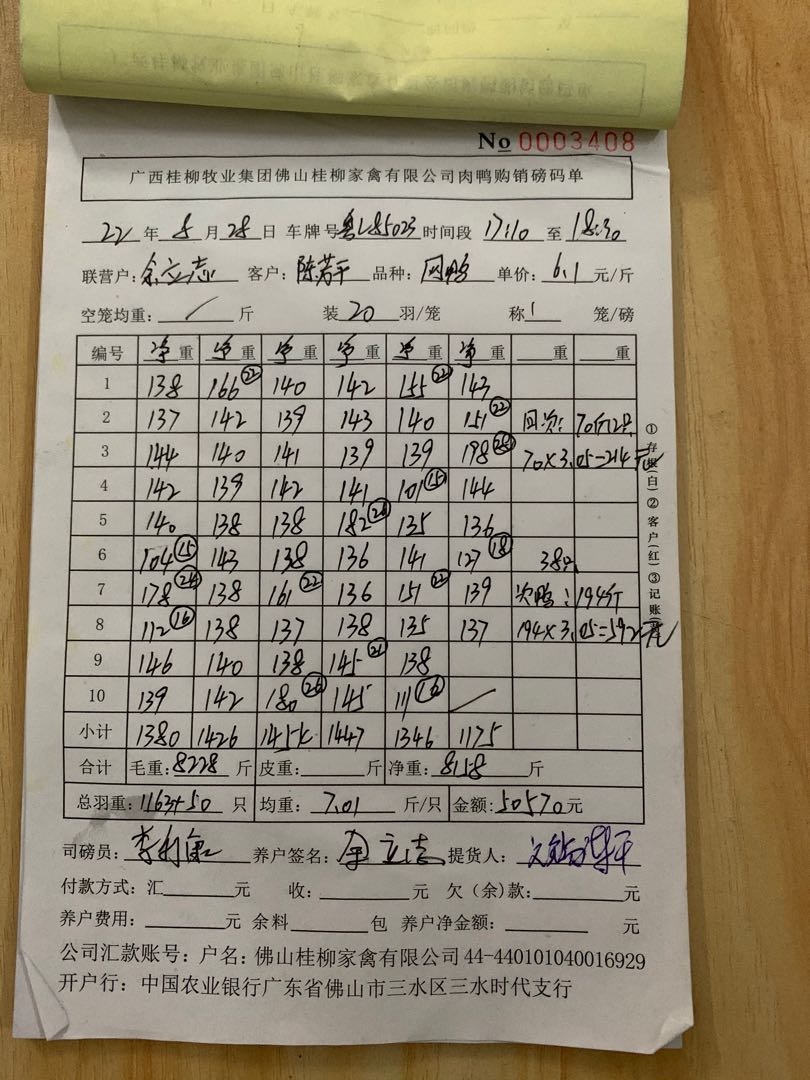 No 0003408
广西桂柳牧业集团佛山桂柳家禽有限公司肉鸭购销磅码单
22 年 8 月 28 日 车牌号 粤L85023 时间段 17:10 至 18:30
联营户: 余立志 客户: 陈若平 品种: 网鸭 单价: 6.1 元/斤
空笼均重: / 斤 装 20 羽/笼 称 1 笼/磅
编号 净重 净重 净重 净重 净重 净重 重 重
1 138 166 (22) 140 142 155 (22) 143
2 137 142 139 143 140 151 (22) 回次: 70斤12只
3 144 140 141 139 139 198 (28) 70×3.05=214元
4 142 139 142 141 101 (15) 144
5 140 138 138 182 (26) 135 136
6 104 (15) 143 138 136 141 127 (18) 38只
7 178 (26) 138 161 (22) 136 151 (22) 139 次鸭: 194斤
8 112 (16) 138 137 138 135 137 194×3.05=592元
9 146 140 138 145 (21) 138
10 139 142 180 (26) 145 111 (16) /
小计 1380 1426 1454 1447 1346 1175
合计 毛重: 8228 斤 皮重: 斤 净重: 8158 斤
总羽重: 1163+50 只 均重: 7.01 斤/只 金额: 50570 元
司磅员: 养户签名: 余立志 提货人:
付款方式: 汇 元 收: 元 欠(余)款: 元
养户费用: 元 余料 包 养户净金额: 元
公司汇款账号: 户名: 佛山桂柳家禽有限公司 44-440101040016929
开户行: 中国农业银行广东省佛山市三水区三水时代支行
①存根(白)②客户(红)③记账(黄)